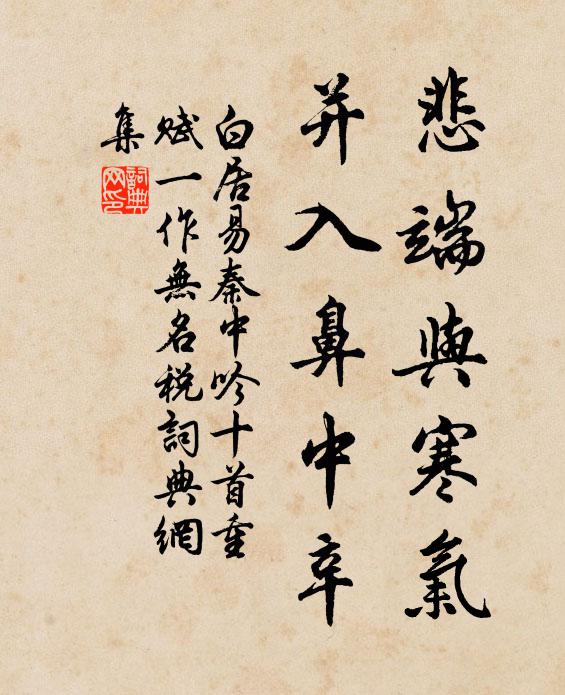 悲端與寒氣
并入鼻中辛
白居易秦中吟十首重
賦一作無名税詞典網
集
詞典
网印